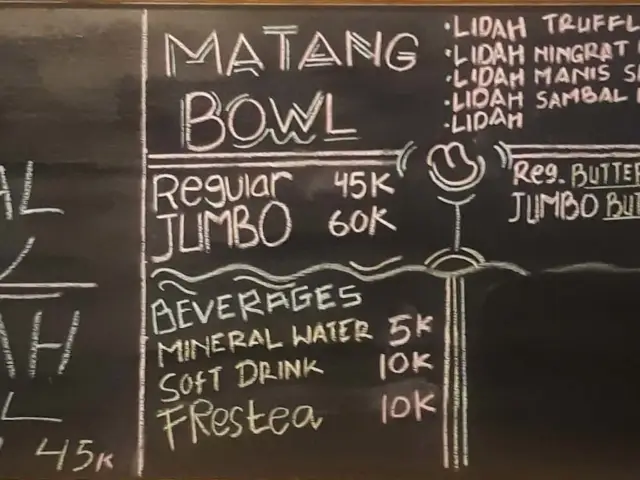 MATANG
BOWL
Regular 45K
JUMBO 60K
BEVERAGES
MINERAL WATER 5K
SOFT DRINK 10K
FRestea 10K
·LIDAH TRUFFL
·LIDAH NINGRAT
·LIDAH MANIS
·LIDAH SAMBAL
·LIDAH
Reg. BUTTER
JUMBO BUT
45K